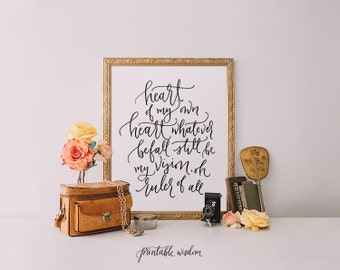 heart
of my own
heart whatever
befall still be
my vision, oh
ruler of all
printable wisdom